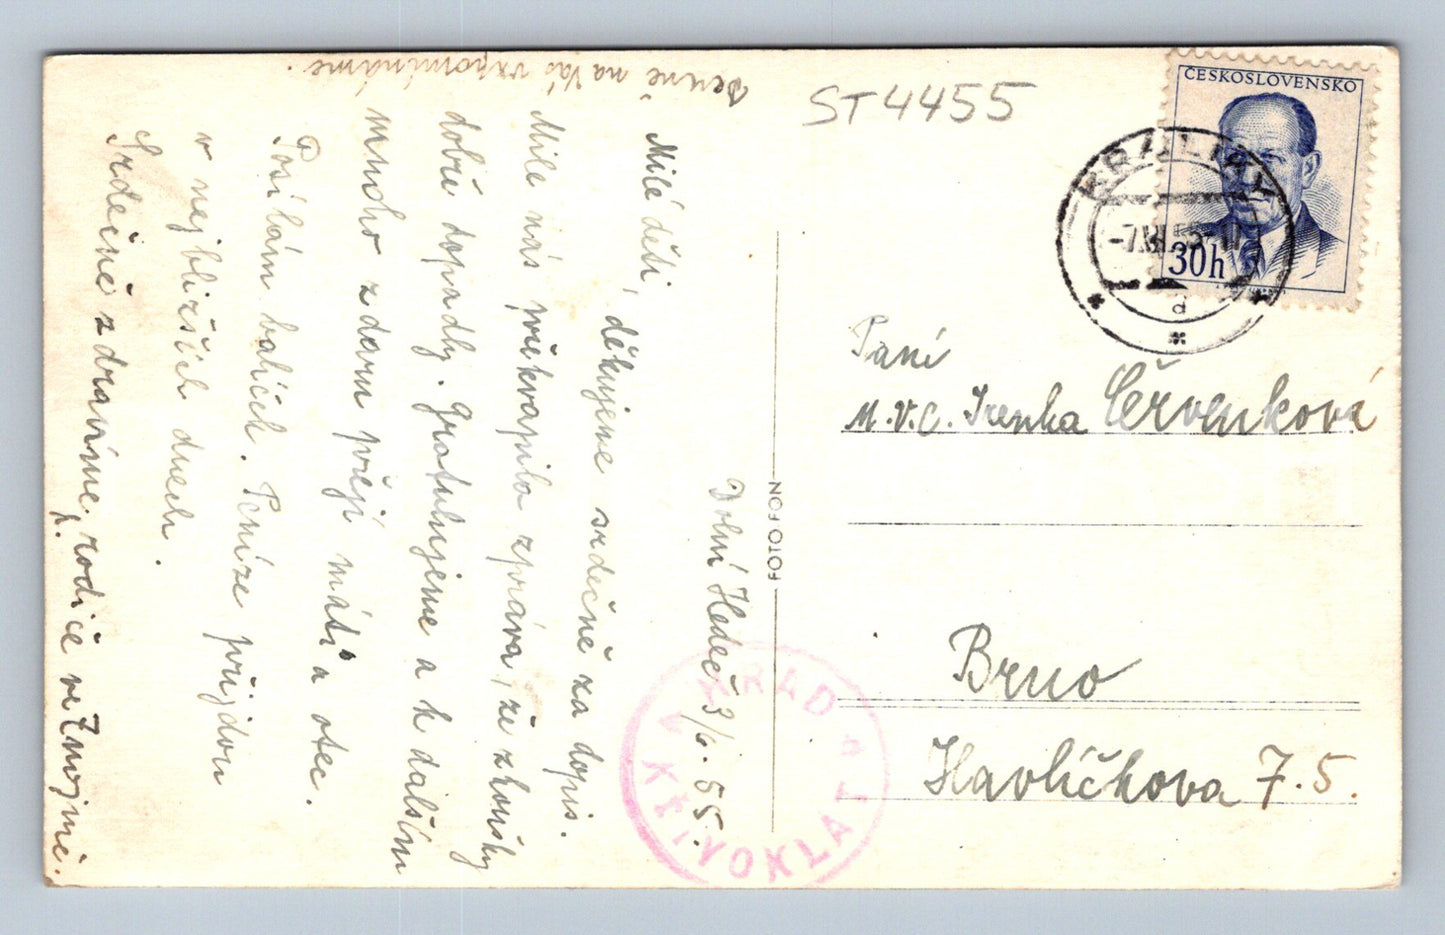 ST4455
ČESKOSLOVENSKO
30h
KRALIKY
d
Dolní Hedeč 3/6. 55.
Milé děti,
děkujeme srdečně za dopis.
Mile nás překvapila zpráva, že zkoušky
dobře dopadly. Gratulujeme a k dalšímu
mnoho zdaru přejí máti a otec.
Posílám balíček. Peníze přijdou
v nejbližších dnech.
Srdečně zdravíme, rodiče ve Znojmě.
Denně na Vás vzpomínáme.
FOTOFON
HRAD
KŘIVOKLÁT
Paní
M.V.C. Irenka Červenková
Brno
Havlíčkova 7.5.